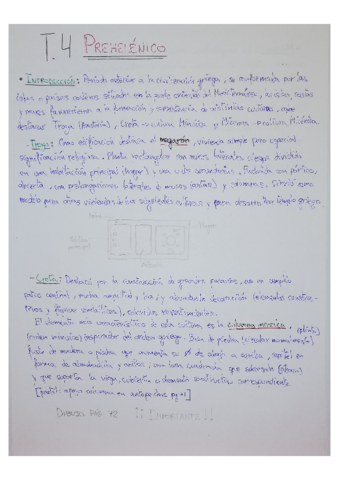 T.4 PREHELÉNICO
• INTRODUCCIÓN: Periodo anterior a la civilización griega, se conformaba por las
islas o países continentes situados en la parte oriental del Mediterráneo,
y mares favorecieron a la formación y coexistencia de distintas culturas,
destacar Troya (Anatolia), Creta → cultura Minoica y Micenas → cultura Micénica.
- TROYA: Como edificación destaca el megarón, vivienda simple pero especial
significación religiosa. Planta rectangular con muros laterales ciegos dividida
en una habitación principal (hogar) y una o dos secundarias. Fachada con pórtico,
abierta, con prolongaciones laterales de muros (antas) y columnas. Sirvió como
modelo para otras viviendas de las siguientes culturas y para desarrollar templo griego.
- CRETA: Destacó por la construcción de grandes palacios, con un amplio
patio central, y abundante decoración (elementos constructi-
vos y figuras simbólicas), coloridos revestimientos.
El elemento más característico de esta cultura es la columna minoica,
(orden minoico) inspirador del orden griego. Basa de piedra (circular normalmente)
Fuste de madera o piedra que aumenta su Ø de abajo a arriba, capitel en
forma de almohadilla y encima, una basa cuadrada que sobresale (ábaco)
y que soporta la viga, cubierta o demanda constructiva correspondiente.
Dibujo Pág 42 ¡¡ IMPORTANTE !!